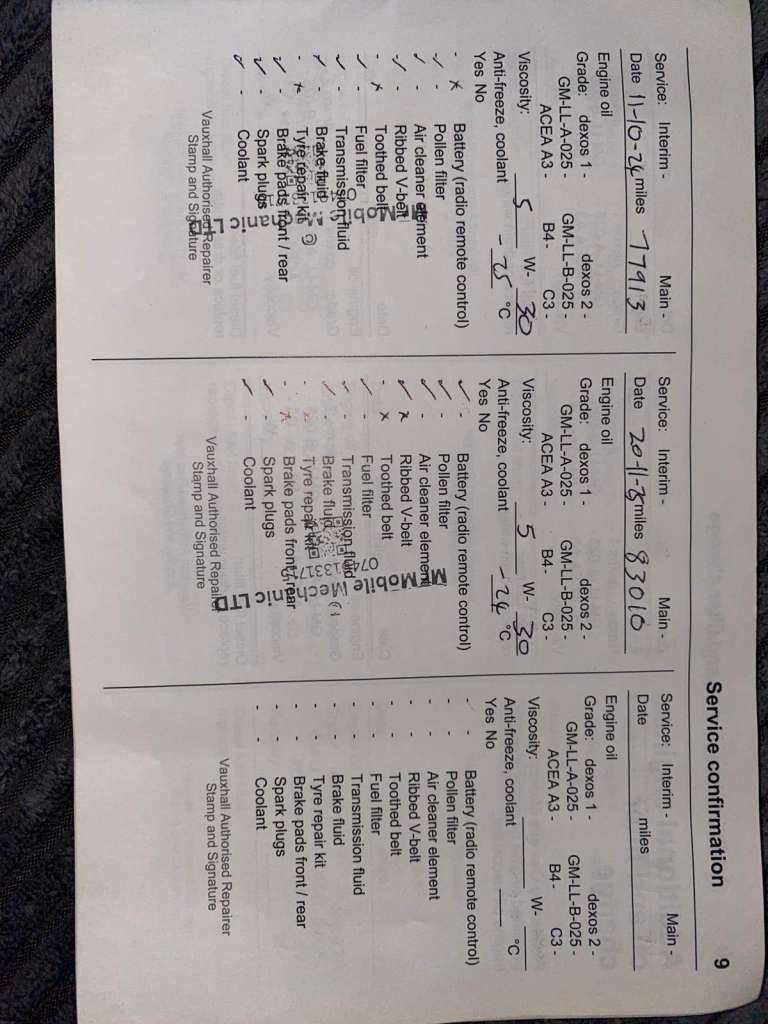 Service confirmation
9
Service: Interim - Main -
Date 11-10-24 miles 77913
Engine oil
Grade: dexos 1 - dexos 2 -
GM-LL-A-025 - GM-LL-B-025 -
ACEA A3 - B4- C3 -
Viscosity: 5 W- 30
Anti-freeze, coolant -25 °C
Yes No
- x Battery (radio remote control)
✓ - Pollen filter
✓ - Air cleaner element
✓ - Ribbed V-belt
- x Toothed belt
✓ - Fuel filter
✓ - Transmission fluid
✓ - Brake fluid
- x Tyre repair kit
✓ - Brake pads front / rear
✓ - Spark plugs
✓ - Coolant
M Mobile Mechanic LTD
Vauxhall Authorised Repairer
Stamp and Signature
Service: Interim - Main -
Date 20-11-25 miles 83010
Engine oil
Grade: dexos 1 - dexos 2 -
GM-LL-A-025 - GM-LL-B-025 -
ACEA A3 - B4- C3 -
Viscosity: 5 W- 30
Anti-freeze, coolant -24 °C
Yes No
✓ - Battery (radio remote control)
✓ - Pollen filter
✓ - Air cleaner element
✓ x Ribbed V-belt
- x Toothed belt
✓ - Fuel filter
✓ - Transmission fluid
✓ - Brake fluid
- x Tyre repair kit
- x Brake pads front / rear
✓ - Spark plugs
✓ - Coolant
M Mobile Mechanic LTD
Vauxhall Authorised Repairer
Stamp and Signature
Service: Interim - Main -
Date miles
Engine oil
Grade: dexos 1 - dexos 2 -
GM-LL-A-025 - GM-LL-B-025 -
ACEA A3 - B4- C3 -
Viscosity: W-
Anti-freeze, coolant °C
Yes No
- - Battery (radio remote control)
- - Pollen filter
- - Air cleaner element
- - Ribbed V-belt
- - Toothed belt
- - Fuel filter
- - Transmission fluid
- - Brake fluid
- - Tyre repair kit
- - Brake pads front / rear
- - Spark plugs
- - Coolant
Vauxhall Authorised Repairer
Stamp and Signature